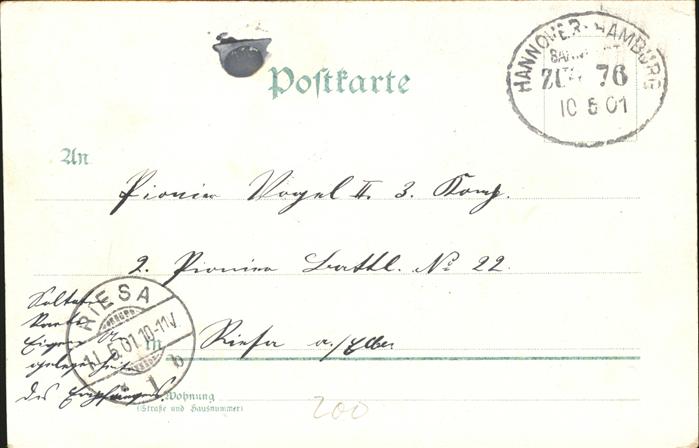 Postkarte
HANNOVER-HAMBURG
BAHNPOST
ZUG 76
10 5 01
An
Pionier Vogel II. 3. Komp.
2. Pionier Battl. No 22.
RIESA
11 5 01 10-11V
* 1 b
in Riesa a./Elbe
Soldaten
Eigene
Angelegenheit
des Empfängers.
Wohnung
(Straße und Hausnummer)
200